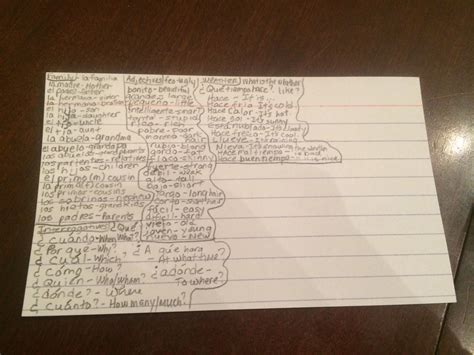 Family - la familia
la madre - Mother
el padre - Father
la hermana - sister
el hermano - brother
el hijo - son
la hija - daughter
el tío - uncle
la tía - aunt
la abuela - Grandma
el abuelo - grandpa
los abuelos
los parientes - relatives
los hijos - children
el primo (m) cousin
la prima (f) cousin
los primos - cousins
los sobrinos
los nietos - grandkids
los padres - Parents
Adjectives feo - ugly
bonito - beautiful
grande - large
pequeña - little
inteligente - smart
tonto - stupid
rico - rich
pobre - poor
rubio - blond
gordo - fat
flaco - skinny
fuerte - strong
débil - weak
alto - tall
bajo - short
largo - long
corto - short
fácil - easy
difícil - hard
viejo - old
joven - young
nuevo - new
¿Qué tiempo hace?
Hace - It's
Hace frío - It's cold
Hace calor - It's hot
Hace sol - It's sunny
Está nublado - It's cloudy
Hace fresco - It's cool
Hace buen tiempo
Interrogatives
¿Cuándo - When?
¿Por que - Why?
¿Cuál - Which?
¿Cómo - How?
¿Quien - Who/Whom?
¿dónde? - Where
¿Cuánto? - How many/much?
¿A qué hora
- At what time?
¿adónde -
To where?